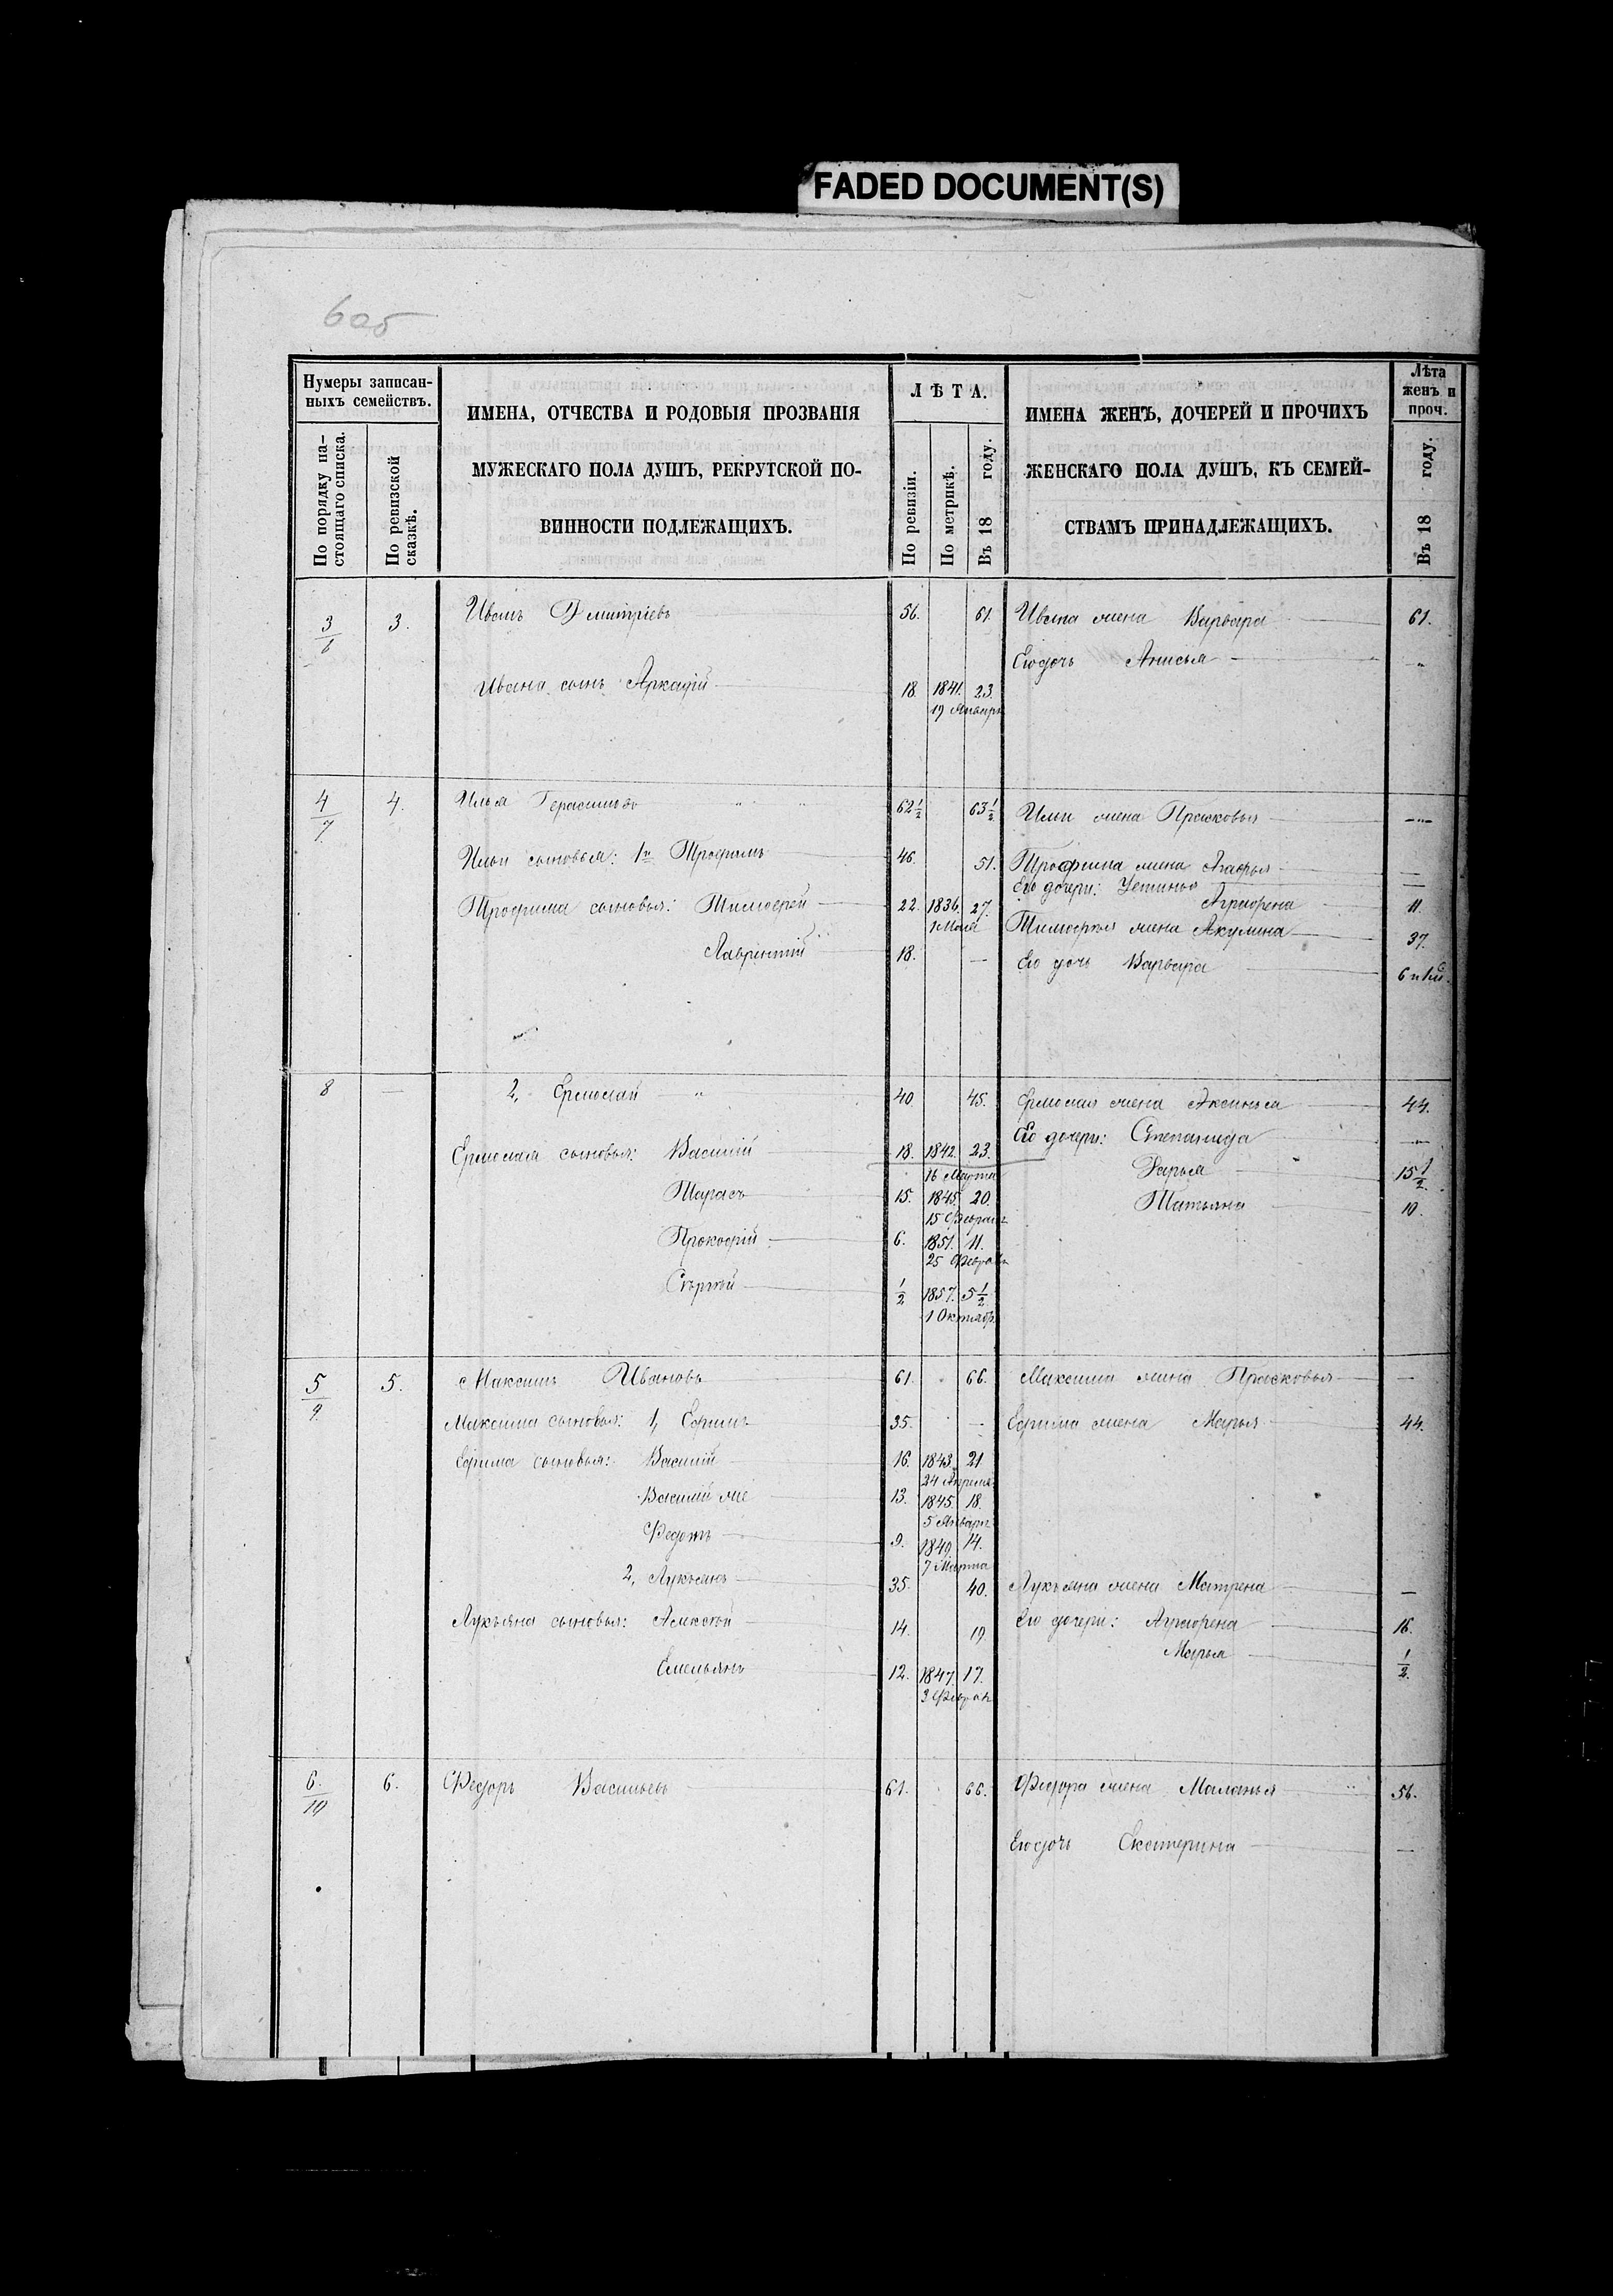 FADED DOCUMENT(S)
6об
Нумеры записан-
ныхъ семействъ.
По порядку на-
стоящаго списка.
По ревизской
сказкѣ.
ИМЕНА, ОТЧЕСТВА И РОДОВЫЯ ПРОЗВАНІЯ
МУЖЕСКАГО ПОЛА ДУШЪ, РЕКРУТСКОЙ ПО-
ВИННОСТИ ПОДЛЕЖАЩИХЪ.
ЛѢТА.
По ревизіи.
По метрикѣ.
Въ 18 году.
ИМЕНА ЖЕНЪ, ДОЧЕРЕЙ И ПРОЧИХЪ
ЖЕНСКАГО ПОЛА ДУШЪ, КЪ СЕМЕЙ-
СТВАМЪ ПРИНАДЛЕЖАЩИХЪ.
Лѣта
женъ и
проч.
Въ 18 году.
3/6 3. Иванъ Дмитріевъ 56. 61. Ивана жена Варвара 61.
Его дочь Анисья "
Ивана сынъ Аркадій 18. 1841. 23.
19 Январ
4/7 4. Илья Герасимовъ " " 62 1/2 63 1/2 Ильи жена Прасковья — " —
Ильи сыновья: 1й Трофимъ 46. 51. Трофима жена Агафья —
Его дочери: Устинья —
Трофима сыновья: Тимофей 22. 1836. 27. Аграфена 11.
1 Мая Тимофея жена Акулина 37.
Лаврентій 18. — Его дочь Варвара
8 — 2, Ермолай " 40 45. Ермолая жена Аксинья 44.
Его дочери: Степанида —
Ермолая сыновья: Василій 18. 1842. 23.
16 Марта Дарья 15 1/2
Тарасъ 15. 1845. 20. Татьяна 10.
15 Феврал
Прокофій 6. 1851. 11.
25 Феврал
Сергѣй 1/2 1857. 5 1/2
1 Октябр
5/9 5. Максимъ Ивановъ 61. 66. Максима жена Прасковья —
Максима сыновья: 1, Ефимъ 35. — Ефима жена Марья 44.
Ефима сыновья: Василій 16. 1843. 21
24 Апреля
Василій же 13. 1845. 18.
5 Январ
Федотъ 9. 1849. 14.
7 Марта
2, Лукьянъ 35. 40. Лукьяна жена Матрена —
Лукьяна сыновья: Алексѣй 14. 19. Его дочери: Аграфена 16.
Марья 1/2.
Емельянъ 12. 1847. 17.
3 Феврал
6/10 6. Федоръ Васильевъ 61. 66. Федора жена Маланья " 56.
Его дочь Екатерина —